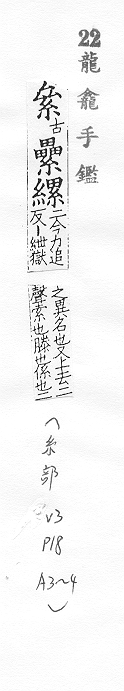 22 龍龕手鑑
絫古纍縲二今力追反|紲獄
之異名也又上去二聲索也藤也係也二
(糸部 v3 P18 A3~4)